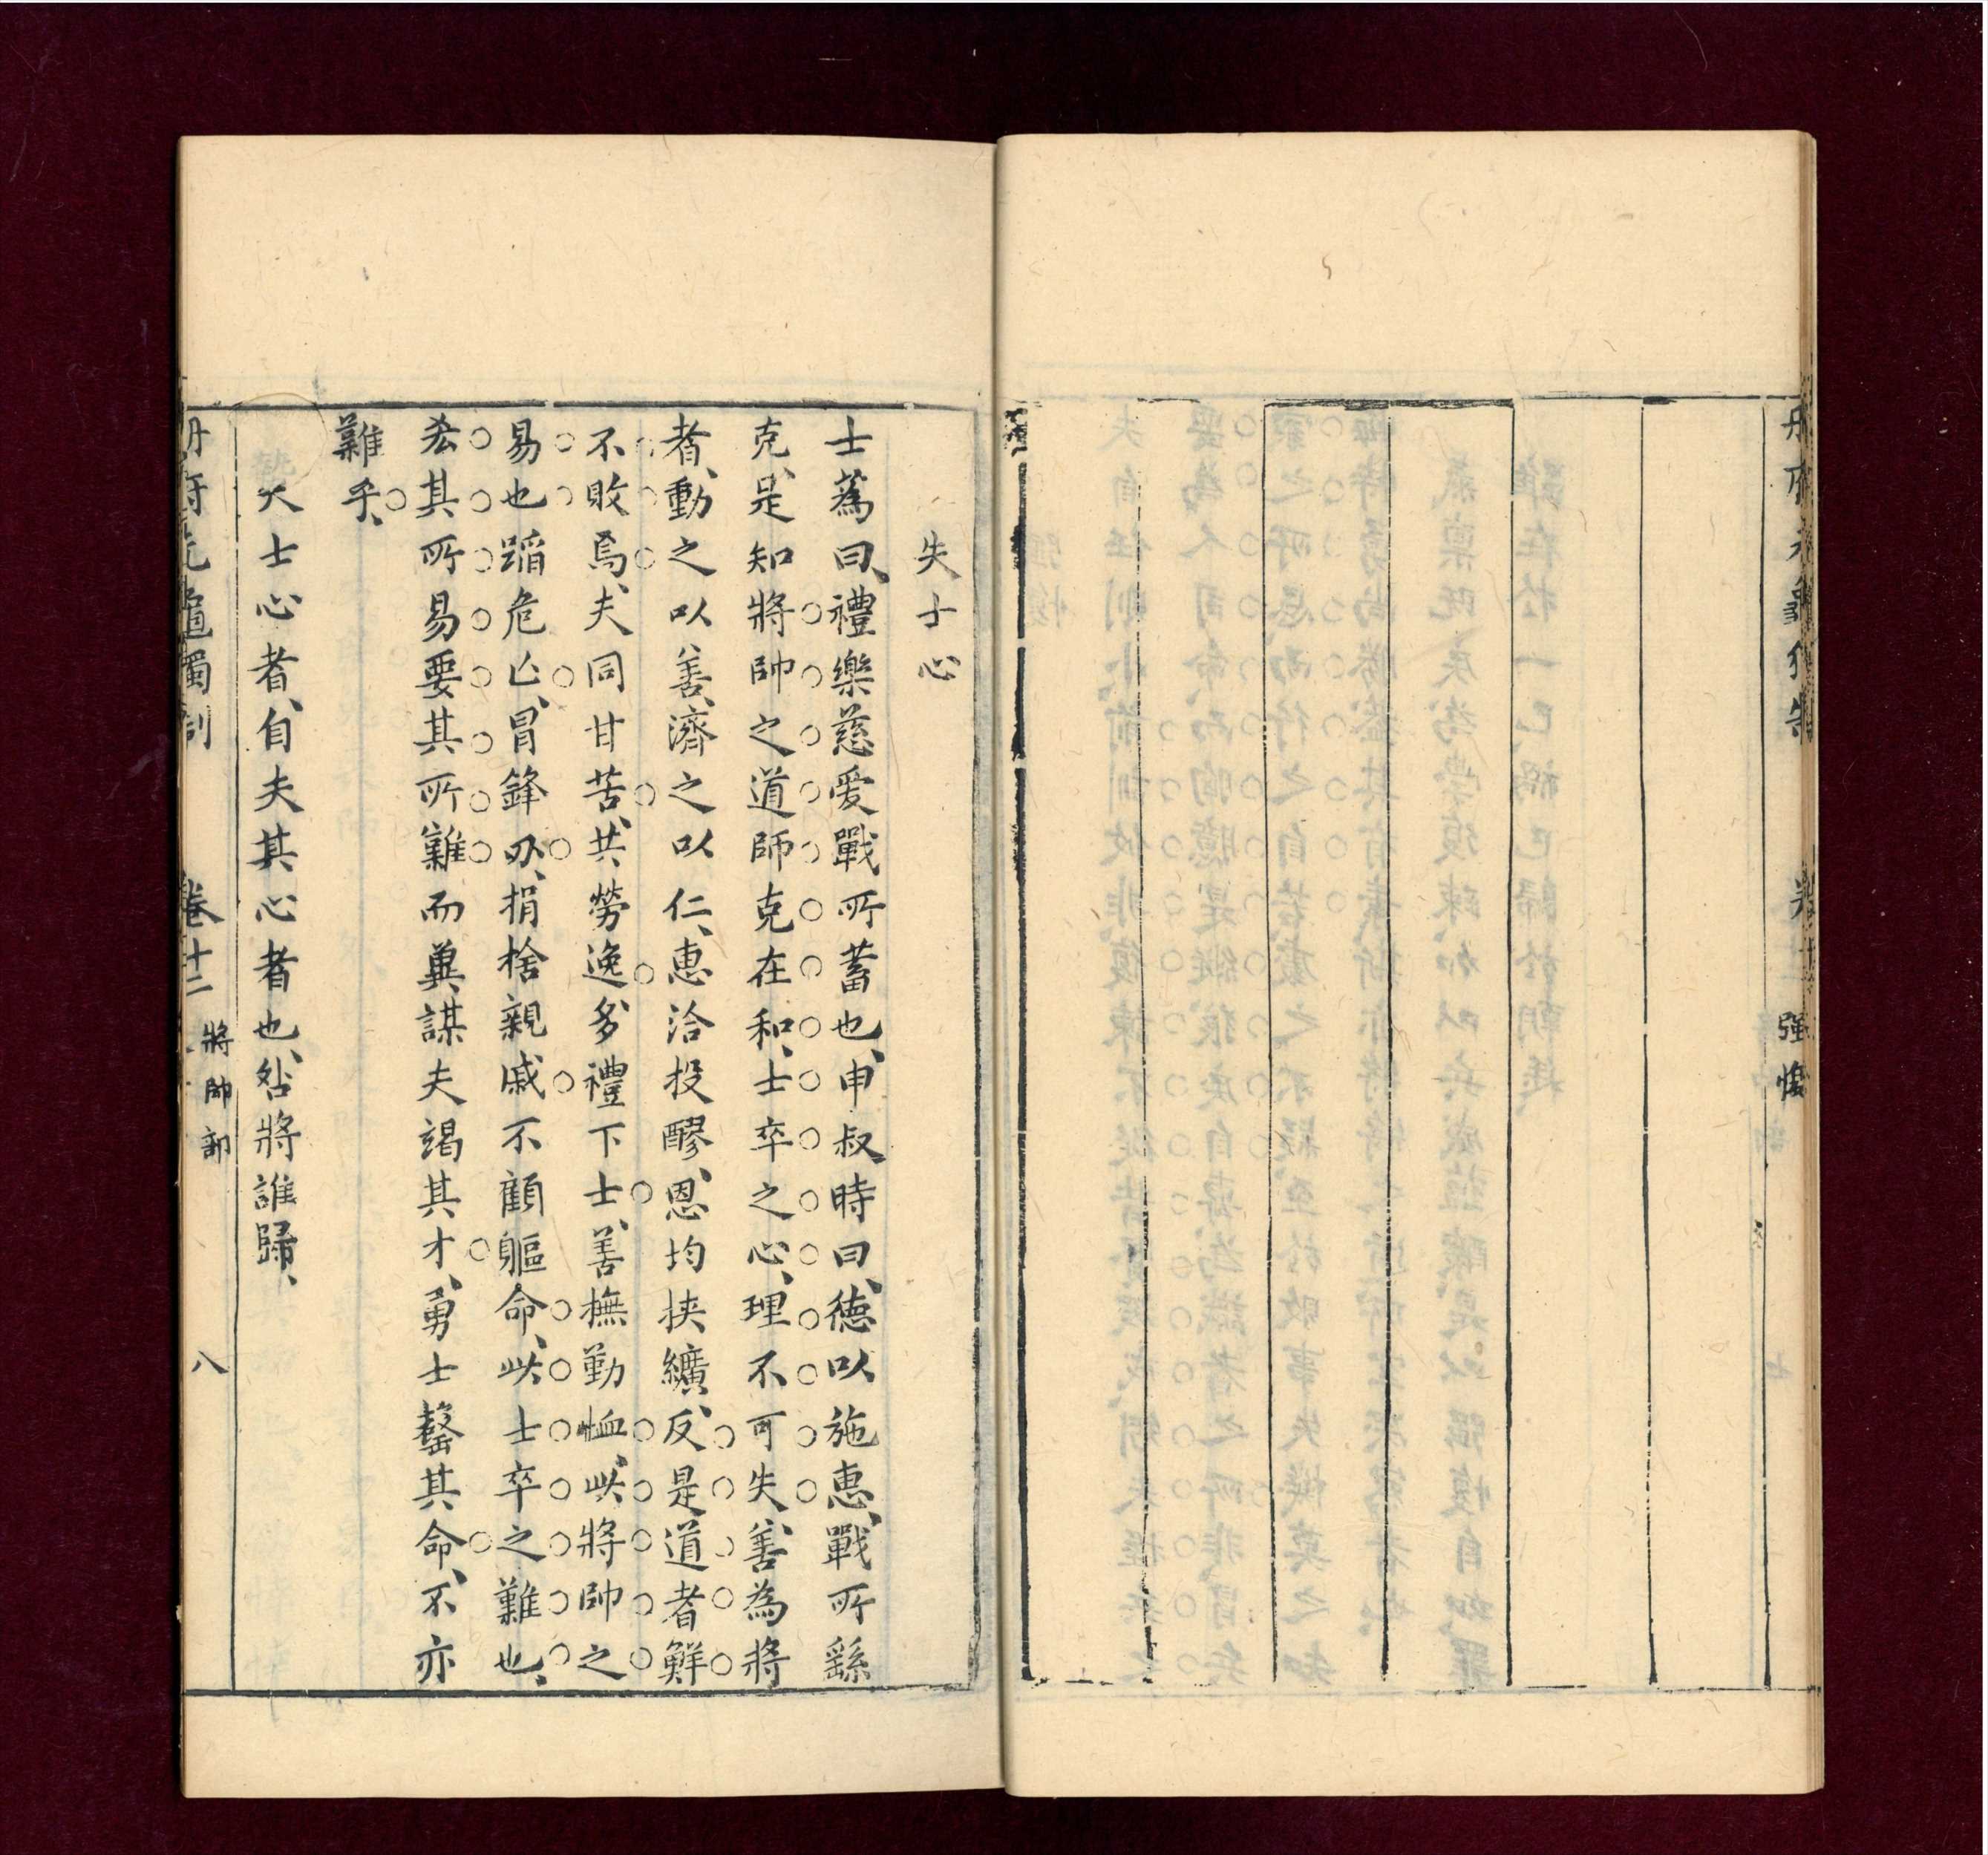 強愎
失士心
士蒍曰、禮樂慈愛戰所蓄也、申叔時曰、德以施惠、戰所繇
克、是知將帥之道師克在和、士卒之心、理不可失、善為將
者、動之以善、濟之以仁、惠洽投醪、恩均挾纊、反是道者鮮
不敗焉、夫同甘苦、共勞逸、多禮下士、善撫勤恤、此將帥之
易也、蹈危亡、冒鋒刃、捐捨親戚不顧軀命、此士卒之難也、
忽其所易要其所難而冀謀夫竭其才、勇士罄其命、不亦
難乎、
失士心者、自失其心者也、咎將誰歸、
冊府元龜獨制 卷十二 將帥部 八